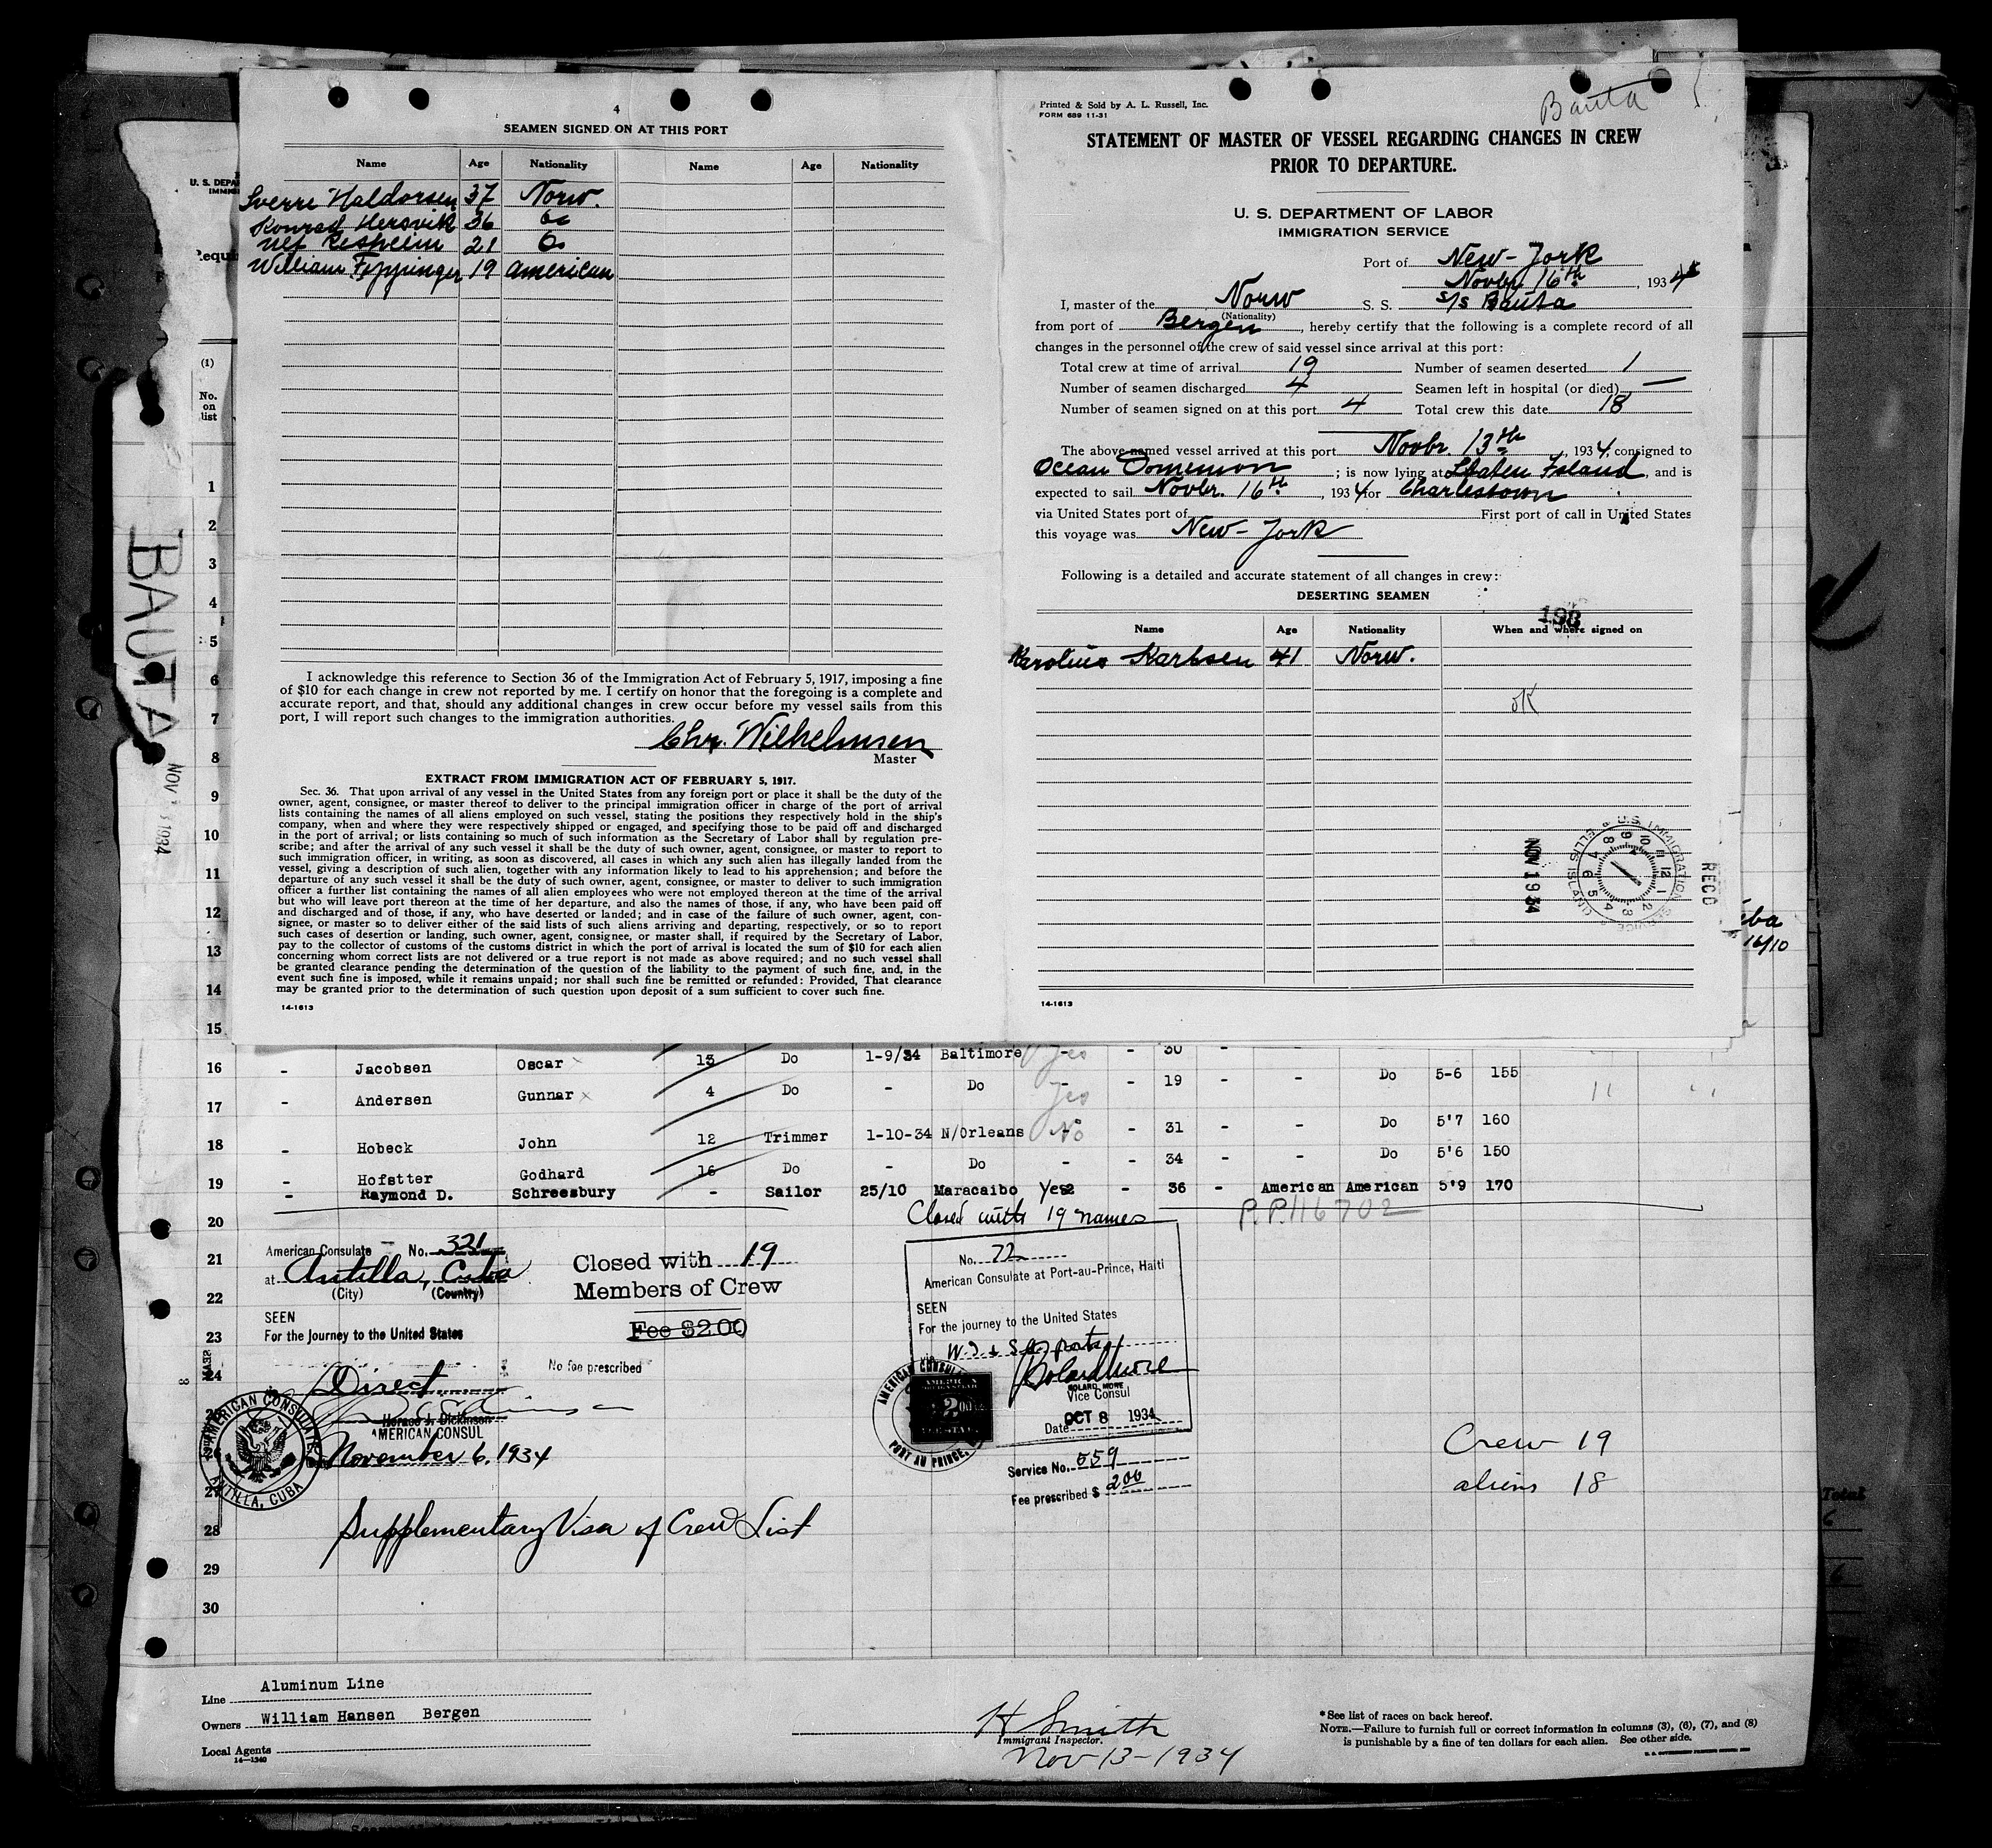 4
SEAMEN SIGNED ON AT THIS PORT
Name Age Nationality Name Age Nationality
Sverre Haldorsen 37 Norw.
Konrad Hersvik 26 do
Ulf 21 do
William 19 American
I acknowledge this reference to Section 36 of the Immigration Act of February 5, 1917, imposing a fine
of $10 for each change in crew not reported by me. I certify on honor that the foregoing is a complete and
accurate report, and that, should any additional changes in crew occur before my vessel sails from this
port, I will report such changes to the immigration authorities.
Chr. Wilhelmsen
Master
EXTRACT FROM IMMIGRATION ACT OF FEBRUARY 5, 1917.
Sec. 36. That upon arrival of any vessel in the United States from any foreign port or place it shall be the duty of the
owner, agent, consignee, or master thereof to deliver to the principal immigration officer in charge of the port of arrival
lists containing the names of all aliens employed on such vessel, stating the positions they respectively hold in the ship's
company, when and where they were respectively shipped or engaged, and specifying those to be paid off and discharged
in the port of arrival; or lists containing so much of such information as the Secretary of Labor shall by regulation pre-
scribe; and after the arrival of any such vessel it shall be the duty of such owner, agent, consignee, or master to report to
such immigration officer, in writing, as soon as discovered, all cases in which any such alien has illegally landed from the
vessel, giving a description of such alien, together with any information likely to lead to his apprehension; and before the
departure of any such vessel it shall be the duty of such owner, agent, consignee, or master to deliver to such immigration
officer a further list containing the names of all alien employees who were not employed thereon at the time of the arrival
but who will leave port thereon at the time of her departure, and also the names of those, if any, who have been paid off
and discharged and of those, if any, who have deserted or landed; and in case of the failure of such owner, agent, con-
signee, or master so to deliver either of the said lists of such aliens arriving and departing, respectively, or so to report
such cases of desertion or landing, such owner, agent, consignee, or master shall, if required by the Secretary of Labor,
pay to the collector of customs of the customs district in which the port of arrival is located the sum of $10 for each alien
concerning whom correct lists are not delivered or a true report is not made as above required; and no such vessel shall
be granted clearance pending the determination of the question of the liability to the payment of such fine, and, in the
event such fine is imposed, while it remains unpaid; nor shall such fine be remitted or refunded: Provided, That clearance
may be granted prior to the determination of such question upon deposit of a sum sufficient to cover such fine.
14-1613
Bauta
Printed & Sold by A. L. Russell, Inc.
FORM 689 11-31
STATEMENT OF MASTER OF VESSEL REGARDING CHANGES IN CREW
PRIOR TO DEPARTURE.
U. S. DEPARTMENT OF LABOR
IMMIGRATION SERVICE
Port of New-York
Novbr. 16th, 1934
I, master of the Norw S. S. S/S Bauta
(Nationality)
from port of Bergen, hereby certify that the following is a complete record of all
changes in the personnel of the crew of said vessel since arrival at this port:
Total crew at time of arrival 19 Number of seamen deserted 1
Number of seamen discharged 4 Seamen left in hospital (or died) —
Number of seamen signed on at this port 4 Total crew this date 18
The above-named vessel arrived at this port Novbr 13th, 1934, consigned to
Ocean Domenion; is now lying at Staten Island, and is
expected to sail Novbr. 16th, 1934 for Charlestown
via United States port of First port of call in United States
this voyage was New-York
Following is a detailed and accurate statement of all changes in crew:
DESERTING SEAMEN
198
Name Age Nationality When and where signed on
Karolius Karlsen 41 Norw.
OK
U.S. IMMIGRATION SERVICE ELLIS ISLAND
NOV 1934
RECD
14-1613
U. S. DEPA
IMMIG
Requi
(1)
No.
on
list
BAUTA
NOV 1934
1
2
3
4
5
6
7
8
9
10
11
12
13
14
15
16/10
16 - Jacobsen Oscar 13 Do 1-9/34 Baltimore Yes - 30 - -
17 - Andersen Gunnar 4 Do - Do Yes - 19 - - Do 5-6 155
18 - Hobeck John 12 Trimmer 1-10-34 N/Orleans No - 31 - - Do 5'7 160
19 - Hofstter Godhard 16 Do - Do - - 34 - - Do 5'6 150
- Raymond D. Schreesbury - Sailor 25/10 Maracaibo Yes - 36 - American American 5'9 170
20
21
22
23
24
27
28
29
30
Closed with 19 names
P.P. 116702
American Consulate No. 321
at Antilla, Cuba
(City) (Country)
SEEN
For the Journey to the United States
Direct
Horace J. Dickinson
AMERICAN CONSUL
November 6, 1934
AMERICAN CONSULATE ANTILLA, CUBA
Closed with 19
Members of Crew
Fee $2.00
No fee prescribed
No. 72
American Consulate at Port-au-Prince, Haiti
SEEN
For the journey to the United States
Bolard More
BOLARD MORE
Vice Consul
Date OCT 8 1934
AMERICAN CONSULATE PORT AU PRINCE
Service No. 559
Fee prescribed $ 2.00
Crew 19
aliens 18
Supplementary Visa of Crew List
Line Aluminum Line
Owners William Hansen Bergen
Local Agents
14-1240
H Smith
Immigrant Inspector.
Nov 13-1934
*See list of races on back hereof.
NOTE.—Failure to furnish full or correct information in columns (3), (6), (7), and (8)
is punishable by a fine of ten dollars for each alien. See other side.
Total
6
6